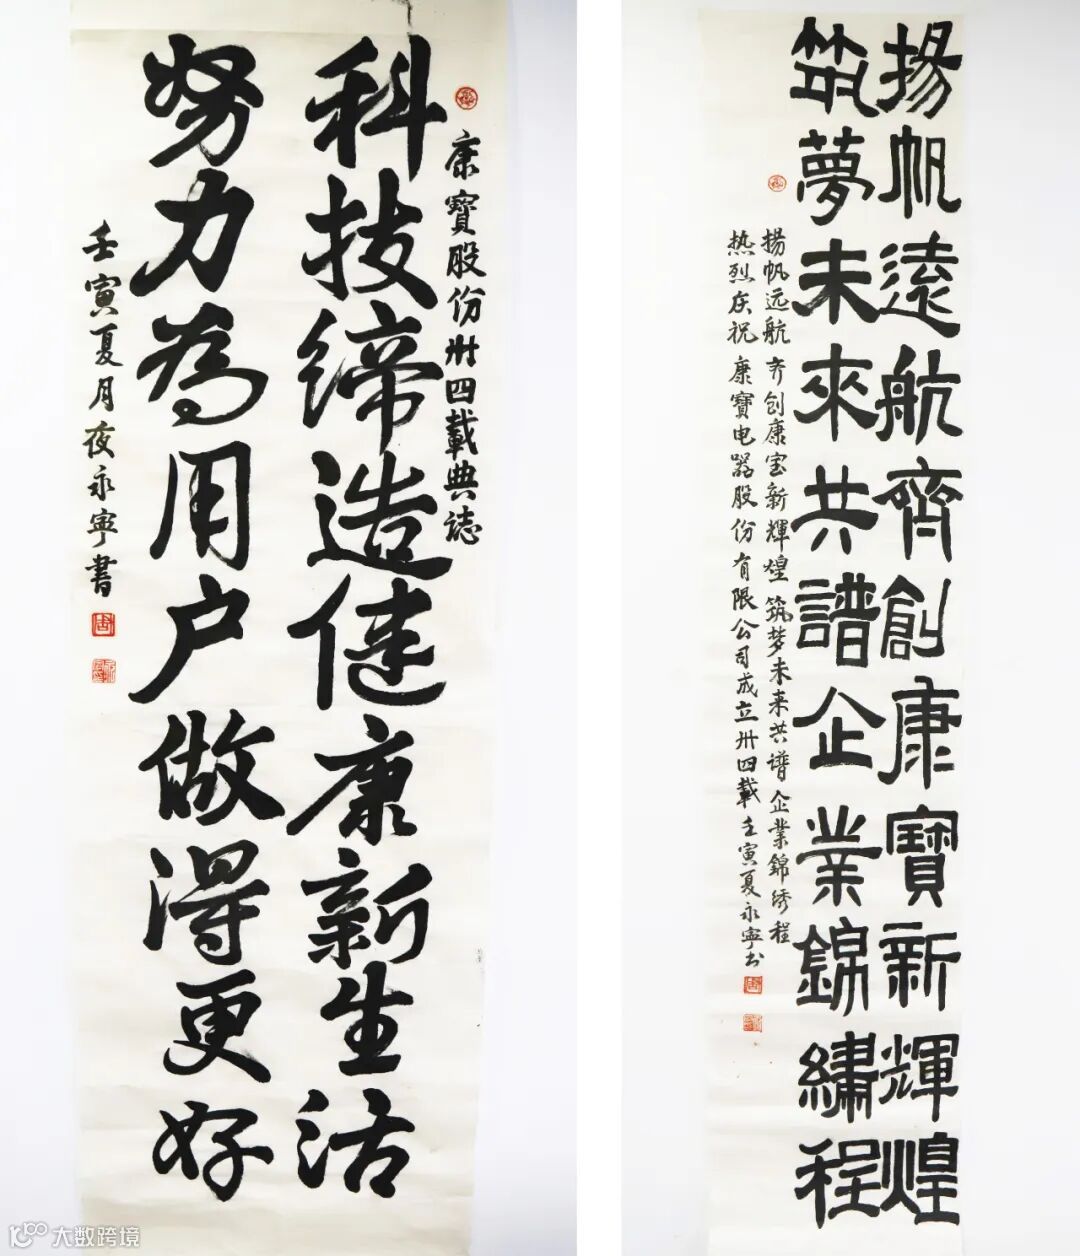 康寶股份卅四載典誌
科技缔造健康新生活
努力為用户做得更好
壬寅夏月夜永寧書
揚帆遠航齊創康寶新輝煌
筑夢未來共譜企業錦繡程
揚帆远航 齐创康宝新輝煌 筑梦未来共谱企業錦绣程
热烈庆祝 康寶电器股份有限公司成立卅四載 壬寅夏永寧书
大数跨境